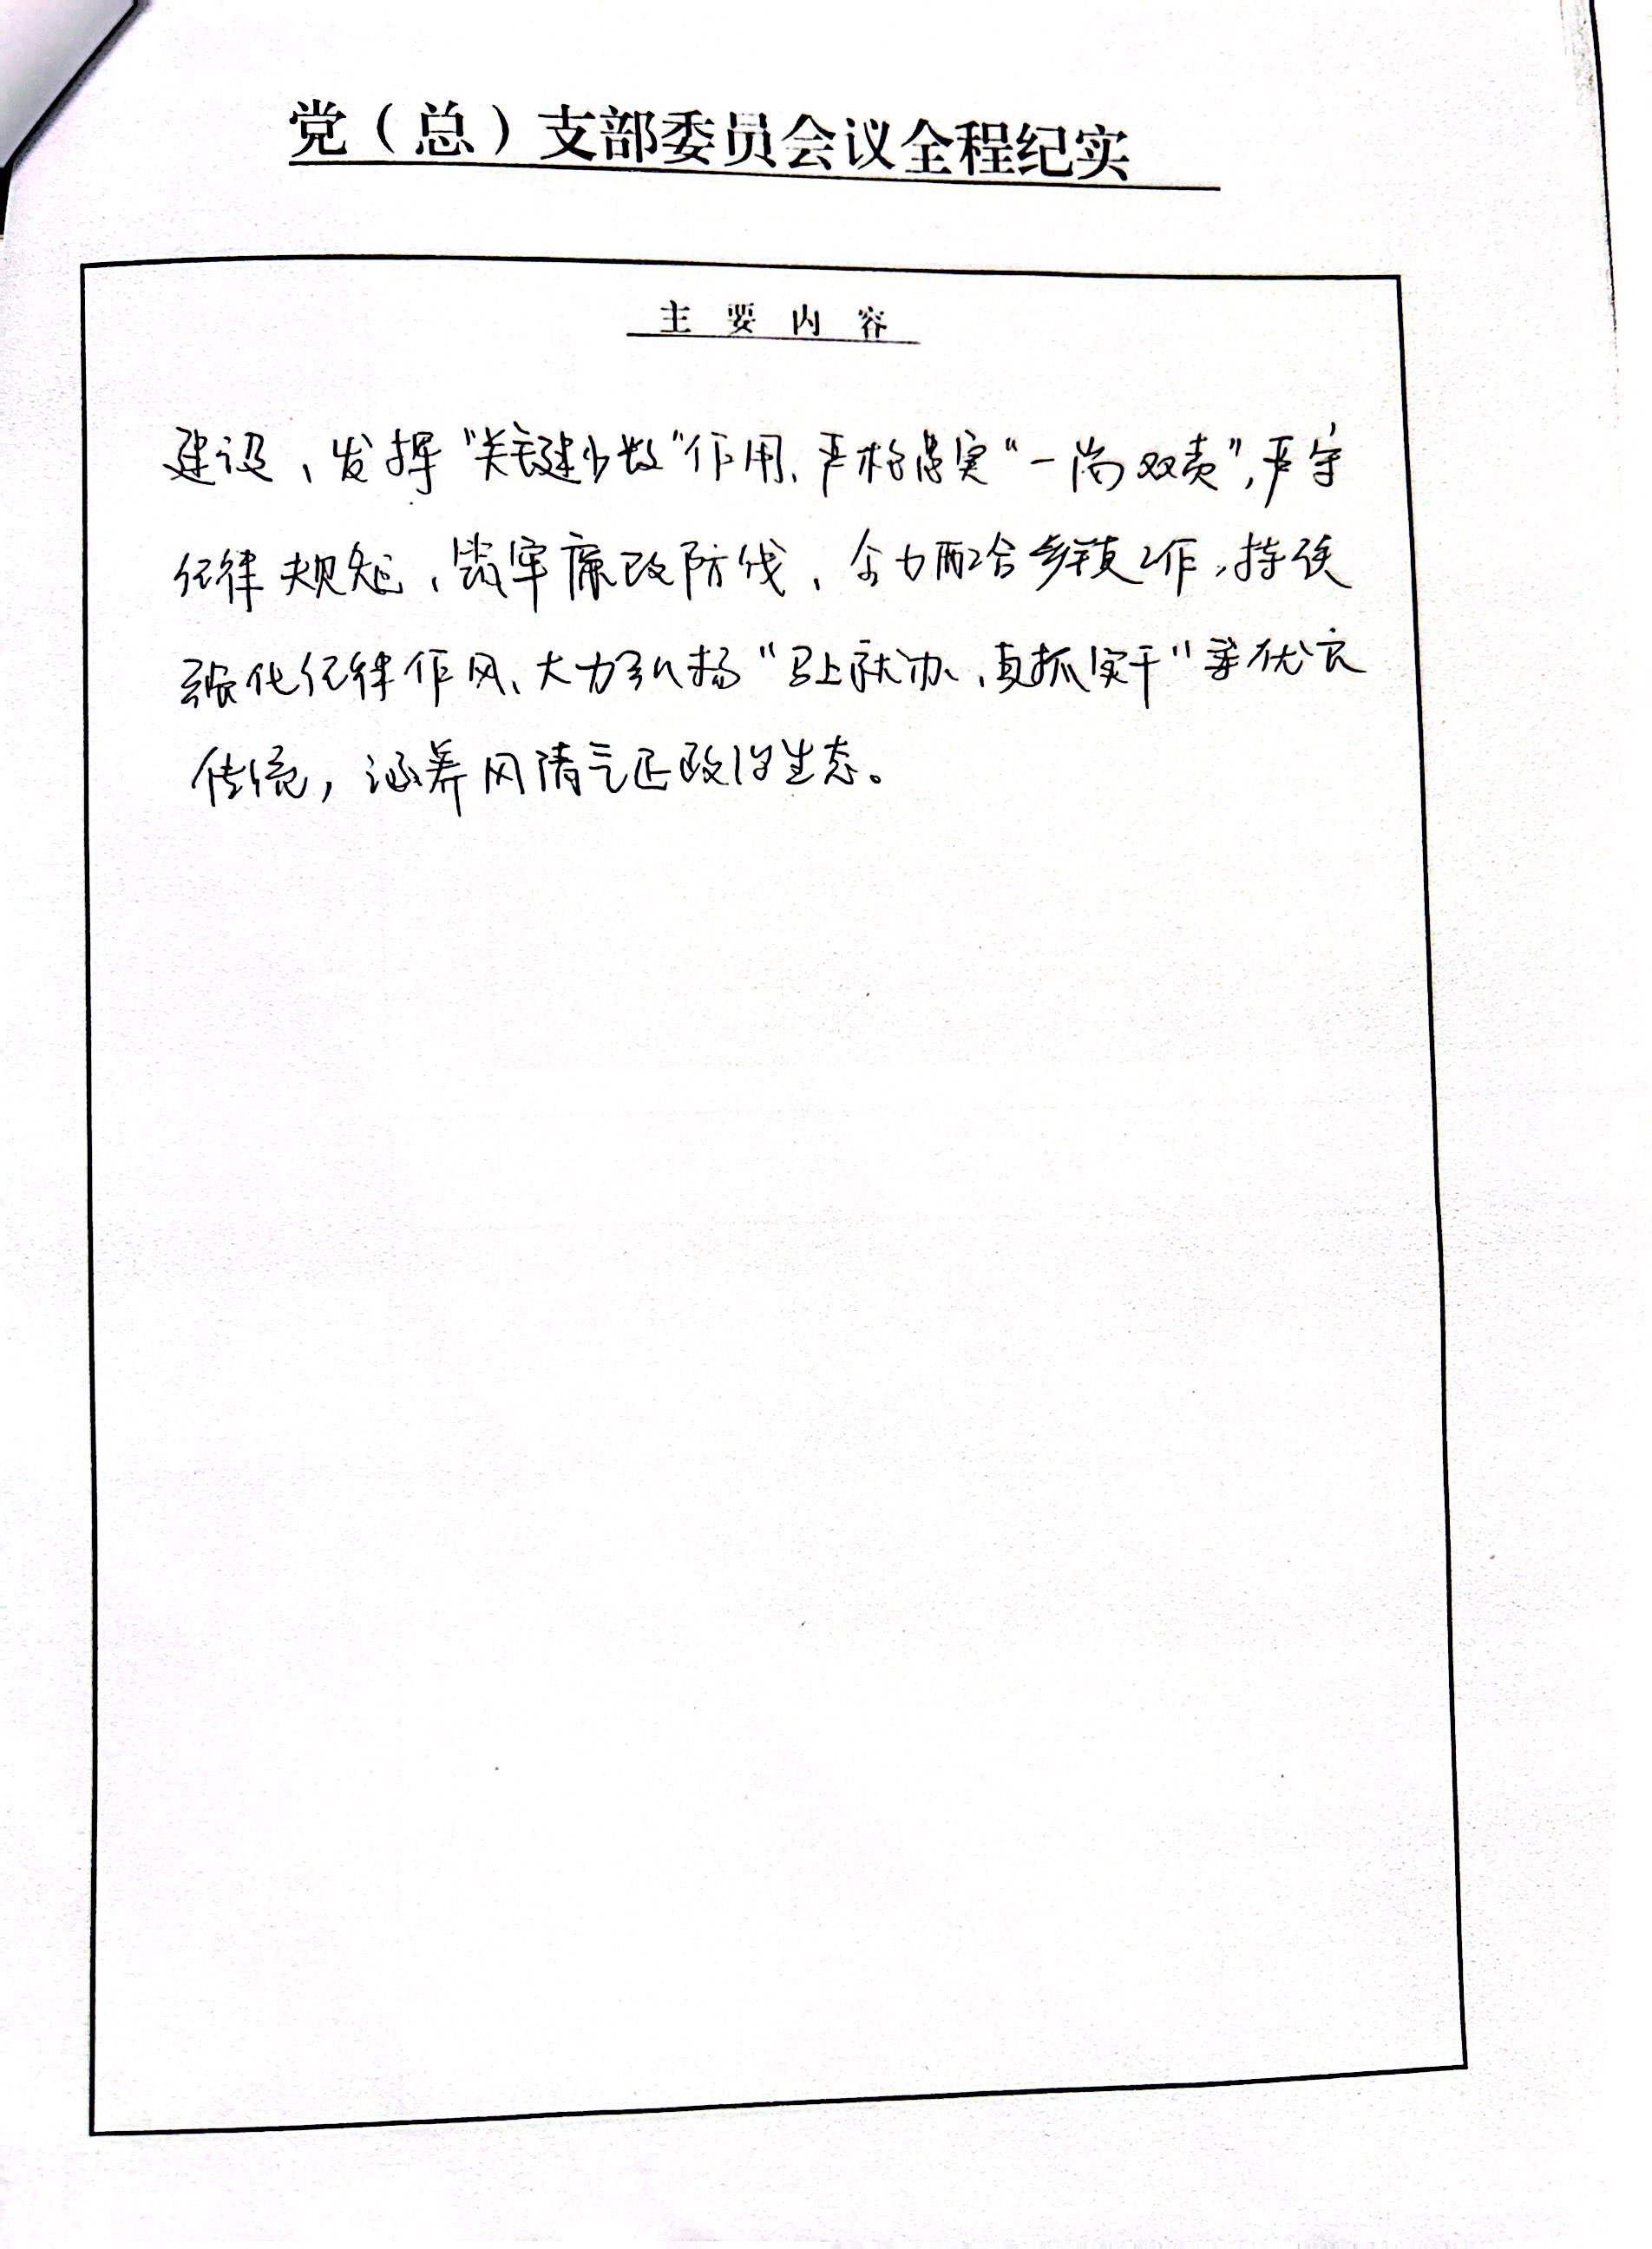 党（总）支部委员会议全程纪实
主要内容
建设，发挥“关键少数”作用，严格落实“一岗双责”，严守
纪律规矩，筑牢廉政防线，全力配合乡镇工作，持续
强化纪律作风，大力弘扬“马上就办、真抓实干”等优良
传统，涵养风清气正政治生态。